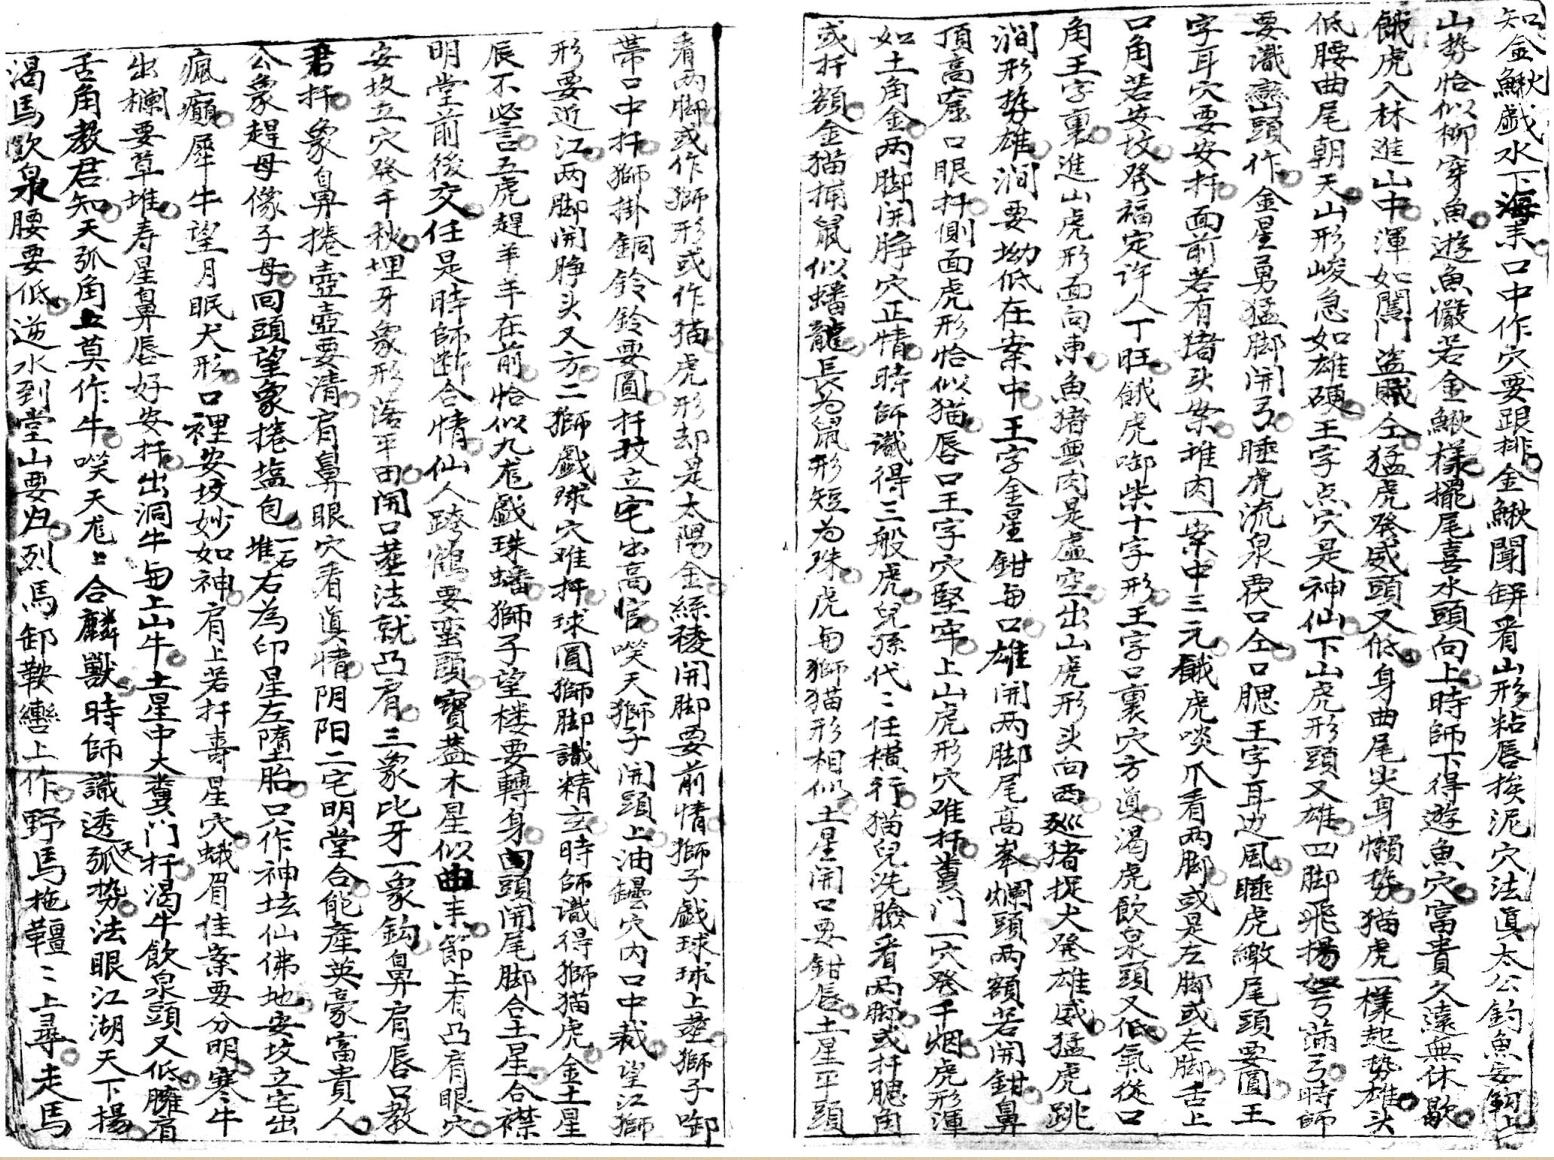 知金鰍戲水下海耒口中作穴要跟排金鰍聞缾看山形粘唇挨泥穴法真太公釣魚安
山勢恰似柳穿魚遊魚儼若金鰍樣擺尾喜水頭向上時師下得遊魚穴富貴久遠無休歇
餓虎入林進山中渾如闖門盜賊仝猛虎發威頭又低身曲尾尖身懶勢猫虎一樣起勢雄头
低腰曲尾朝天山形峻急如雄硬王字点穴是神仙下山虎形頭又雄四脚飛揚弯滿弓時師
要識巒頭作金星勇猛脚開弓睡虎流泉畏口仝口腮王字耳边風睡虎繳尾頭要圓王
字耳穴要安扦面前若有猪头案堆肉一案中三元餓虎啖爪看两脚或是左脚或右脚舌上
口角若安坟發福定许人丁旺餓虎啣柴十字形王字口裏穴方真渴虎飲泉頭又低氣從口
角王字裏進山虎形面向東魚猪無肉是虛空出山虎形头向西廵猪捉犬發雄威猛虎跳
澗形勢雄澗要坳低在案中王字金星鉗每口雄開两脚尾高峯爛頭两額若開鉗鼻
頂高窩口眼扦側面虎形恰似猫唇口王字穴堅牢上山虎形穴难扦糞门一穴發千烟虎形渾
如土角金两脚開睁穴正情時師識得三般虎兒孫代〻任橫行猫兒洗臉看两脚或扦腮角
或扦額金猫捕鼠似蟠龍長为鼠形短为珠虎每獅猫形相似土星開口要鉗唇土星平頭
看两脚或作獅形或作猫虎形却是太陽金絲稜開脚要前情獅子戲球球上塟獅子啣
帶口中扦獅掛銅鈴鈴要圓扦坟立宅出高官咲天獅子開頭上油鐚穴内口中裁望江獅
形要近江两脚開睁头又方二獅戲球穴难扦球圓獅脚識精玄時師識得獅猫虎金土星
辰不必言五虎趕羊羊在前恰似九龙戲珠蟠獅子望楼要轉身囬頭開尾脚合土星合襟
明堂前後交任是時師断合情仙人跨鶴要蛮頭寶盖木星似曲耒節上有凸肩眼穴
安坟立穴發千秋埋牙象形落平田開口塟法就凸肩三象比牙一象鈎鼻肩唇口教
君扦象鼻捲壺壺要清有鼻眼穴看真情阴阳二宅明堂合能產英豪富貴人
公象趕母像子母囬頭望象捲塩包一堆石右為印星左墮胎只作神坛仙佛地安坟立宅出
瘋癲犀牛望月眠犬形口裡安坟妙如神肩上若扦壽星穴蛾眉佳案要分明寒牛
出欄要草堆寿星鼻唇好安扦出洞牛每上山牛土星中大糞门扦渴牛飲泉頭又低臃肩
舌角教君知天孤角上莫作牛咲天龙上合麟獸時師識透天孤势法眼江湖天下揚
渴馬飲泉腰要低逆水到堂山要归烈馬卸鞍轡上作野馬拖韁〻上尋走馬